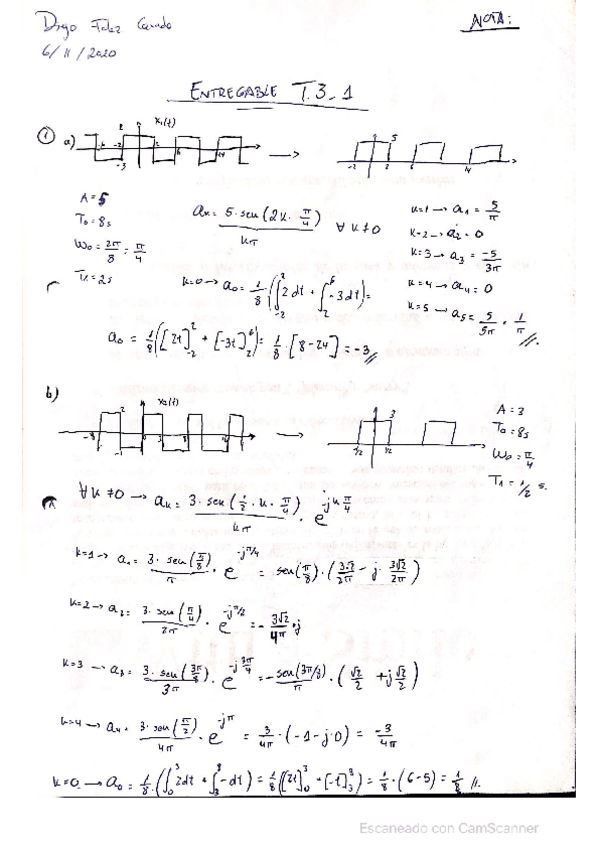 NOTA:
6/11/2020
ENTREGABLE T.3_1
① a)
x₁(t)
-6 -2 2 2 6 -3
-2 2 5 6 14
A = 5
T₀ = 8s
W₀ = 2π/8 = π/4
T₁ = 2s
aₖ = 5·sen(2k·π/4)/kπ ∀k≠0
k=1 → a₁ = 5/π
k=2 → a₂ = 0
k=3 → a₃ = -5/3π
k=4 → a₄ = 0
k=5 → a₅ = 5/5π = 1/π //.
k=0 → a₀ = 1/8 (∫₋₂² 2dt + ∫₂⁶ -3dt) =
a₀ = 1/8 ([2t]₋₂² + [-3t]₂⁶) = 1/8 · [8-24] = -3 //
b)
x₂(t)
2 -1
3
A = 3
T₀ = 8s
W₀ = π/4
T₁ = 1/2 s.
∀k≠0 → aₖ = 3·sen(1/2·k·π/4)/kπ · e^(-jkπ/4)
k=1 → a₁ = 3·sen(π/8)/π · e^(-jπ/4) = sen(π/8)·(3√2/2π - j·3√2/2π)
k=2 → a₂ = 3·sen(π/4)/2π · e^(-jπ/2) = -3√2/4π·j
k=3 → a₃ = 3·sen(3π/8)/3π · e^(-j3π/4) = -sen(3π/8)/π · (√2/2 + j√2/2)
k=4 → a₄ = 3·sen(π/2)/4π · e^(-jπ) = 3/4π · (-1-j·0) = -3/4π
k=0 → a₀ = 1/8 (∫₀³ 2dt + ∫₃⁸ -dt) = 1/8 ([2t]₀³ + [-t]₃⁸) = 1/8 · (6-5) = 1/8 //.
Escaneado con CamScanner